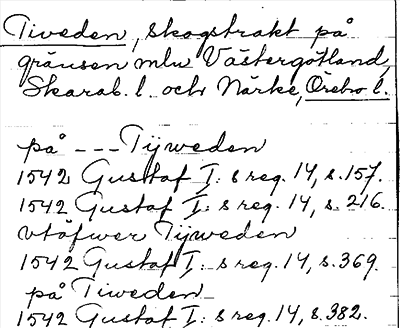 Tiveden, skogstrakt på
gränsen mlu Västergötland,
Skarab. l. och Närke, Örebro l.
på --- Tijweden
1542 Gustaf I: s reg. 14, s. 157.
1542 Gustaf I: s reg. 14, s. 216.
vtöfwer Tijweden
1542 Gustaf I: s reg. 14, s. 369.
på Tiweden
1542 Gustaf I: s reg. 14, s. 382.